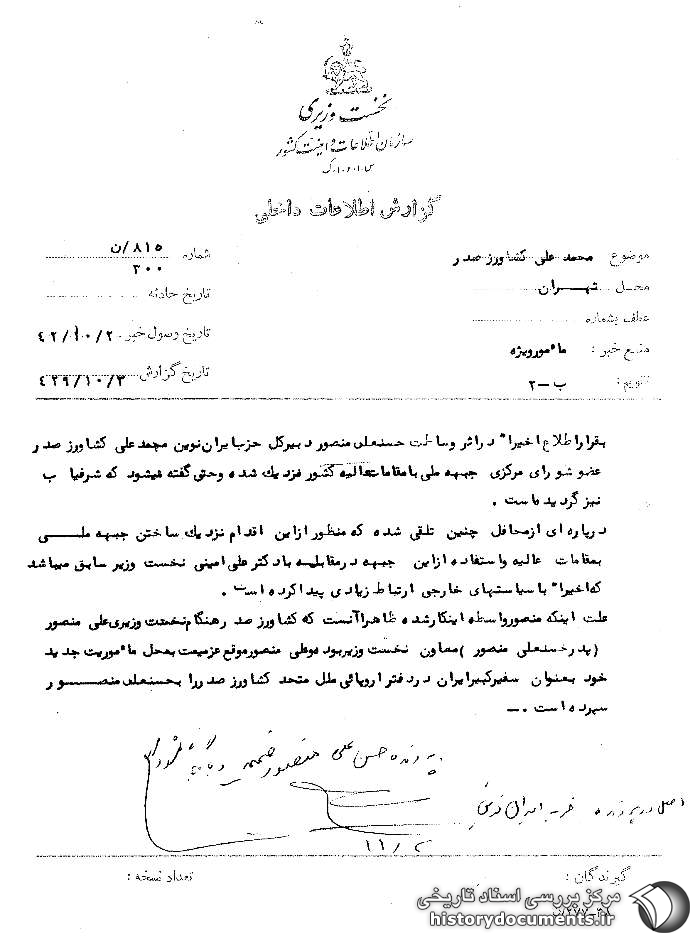 نخست وزیری
سازمان اطلاعات و امنیت کشور
س.ا.و.ا.ک
گزارش اطلاعات داخلی
موضوع محمد علی کشاورز صدر
محل تهران
عطف بشماره
منبع خبر : مأمور ویژه
تقویم : ب-۲
شماره ۸۱۵/ن
۳۰۰
تاریخ حادثه
تاریخ وصول خبر ۴۲/۱۰/۲
تاریخ گزارش
بقرار اطلاع اخیراً در اثر وساطت حسنعلی منصور دبیرکل حزب ایران نوین محمد علی کشاورز صدر
عضو شورای مرکزی جبهه ملی با مقامات عالیه کشور نزدیک شده و حتی گفته میشود که شرفیاب
نیز گردیده است .
در پاره ای از محافل چنین تلقی شده که منظور از این اقدام نزدیک ساختن جبهه ملی
بمقامات عالیه و استفاده از این جبهه در مقابله با دکتر علی امینی نخست وزیر سابق میباشد
که اخیراً با سیاستهای خارجی ارتباط زیادی پیدا کرده است .
علت اینکه منصور واسطه اینکار شده ظاهرا آنست که کشاورز صدر هنگام نخست وزیری علی منصور
(پدر حسنعلی منصور) معاون نخست وزیر بوده و علی منصور موقع عزیمت بمحل مأموریت جدید
خود بعنوان سفیر کبیر ایران در دفتر اروپائی ملل متحد کشاورز صدر را بحسنعلی منصور
سپرده است .
پرونده حسن علی منصور ضمیمه و بایگانی شود
اصل در پرونده حزب ایران نوین
۱۱/۲
گیرندگان :
تعداد نسخه :
مرکز بررسی اسناد تاریخی
historydocuments.ir